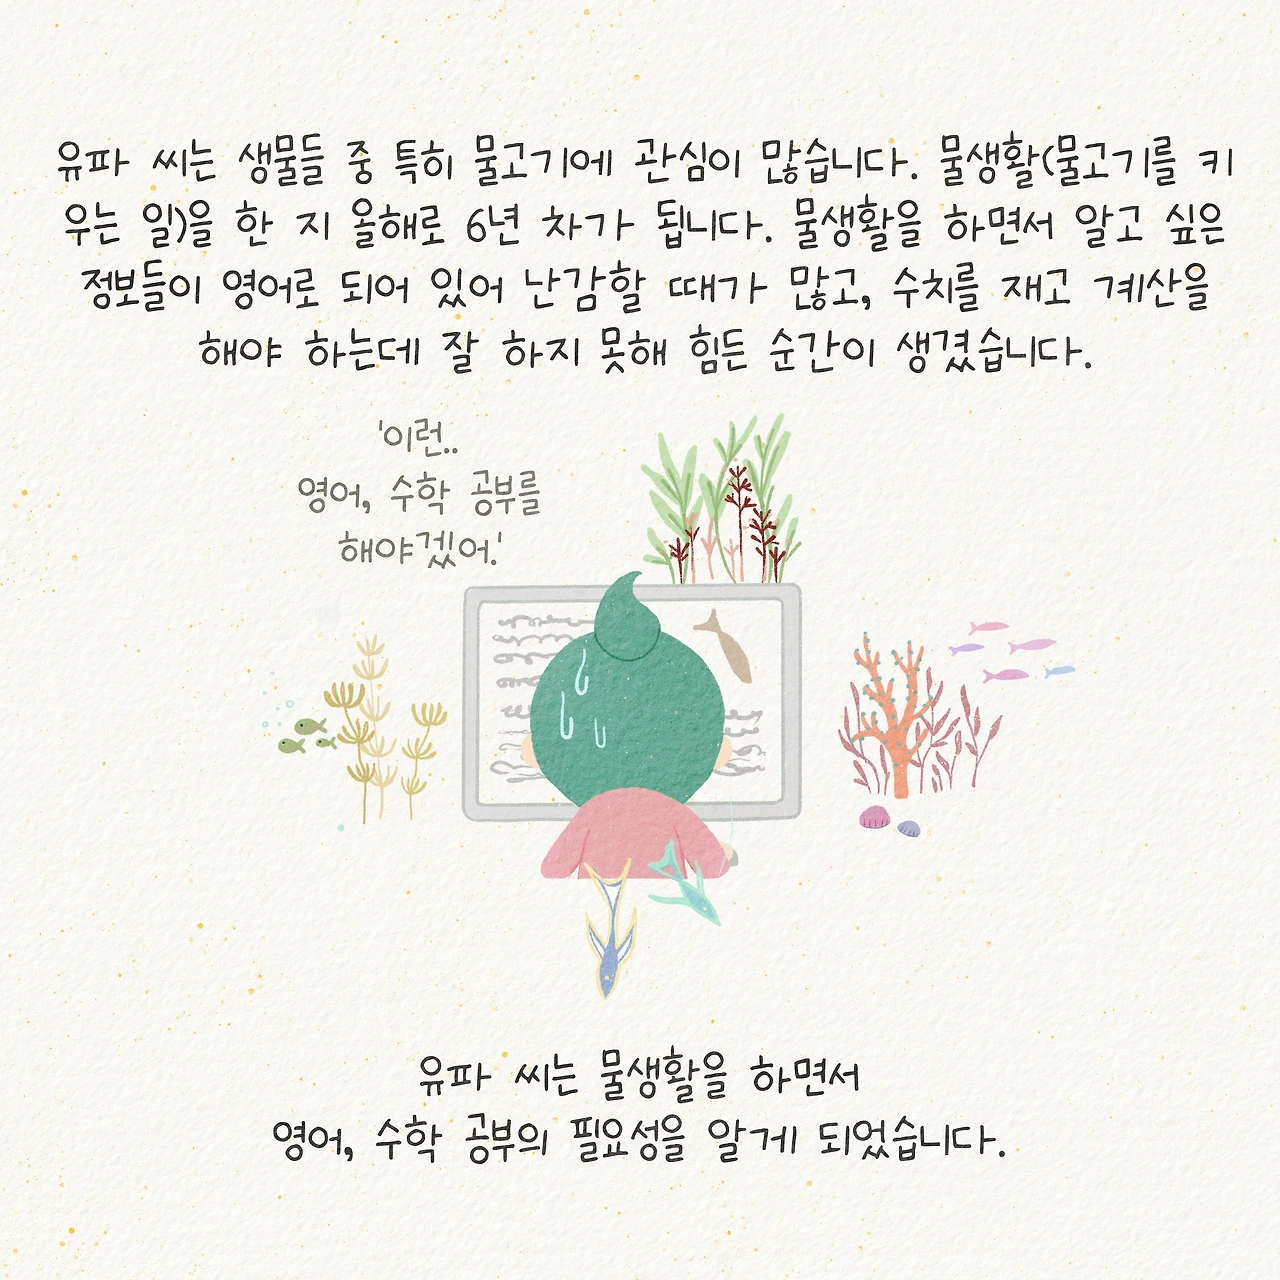 유파 씨는 생물들 중 특히 물고기에 관심이 많습니다. 물생활(물고기를 키
우는 일)을 한 지 올해로 6년 차가 됩니다. 물생활을 하면서 알고 싶은
정보들이 영어로 되어 있어 난감할 때가 많고, 수치를 재고 계산을
해야 하는데 잘 하지 못해 힘든 순간이 생겼습니다.
'이런..
영어, 수학 공부를
해야겠어.'
유파 씨는 물생활을 하면서
영어, 수학 공부의 필요성을 알게 되었습니다.